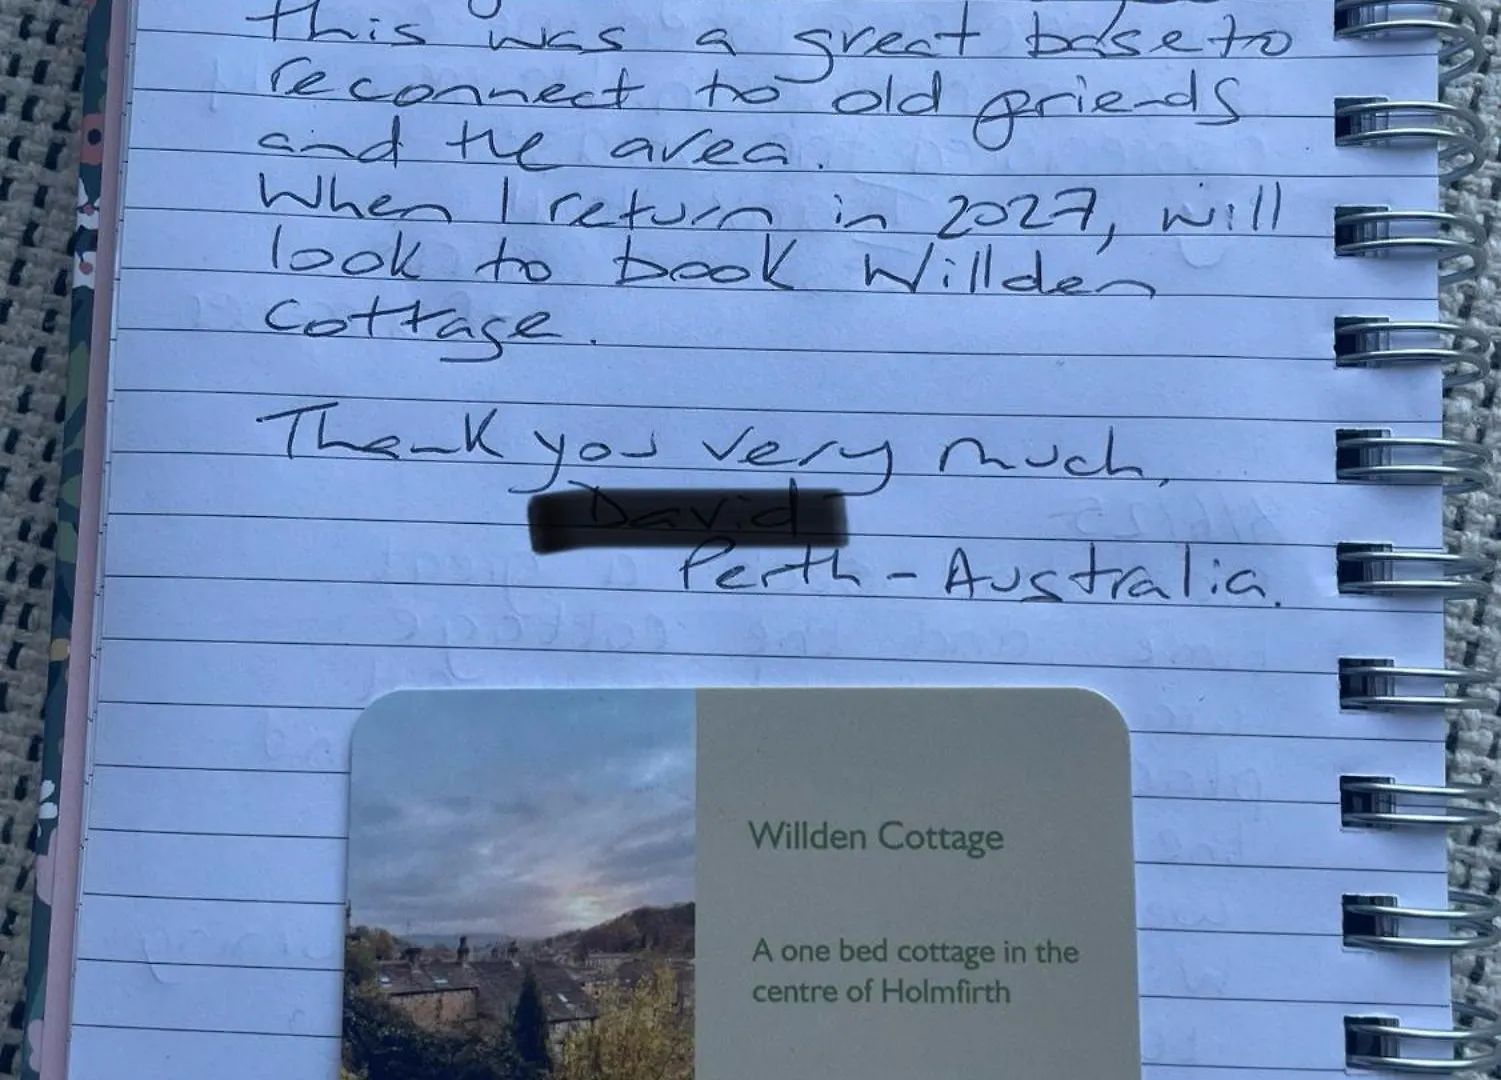 this was a great base to
reconnect to old friends
and the area.
When I return in 2027, will
look to book Willden
Cottage.
Thank you very much,
David
Perth - Australia.
Willden Cottage
A one bed cottage in the
centre of Holmfirth